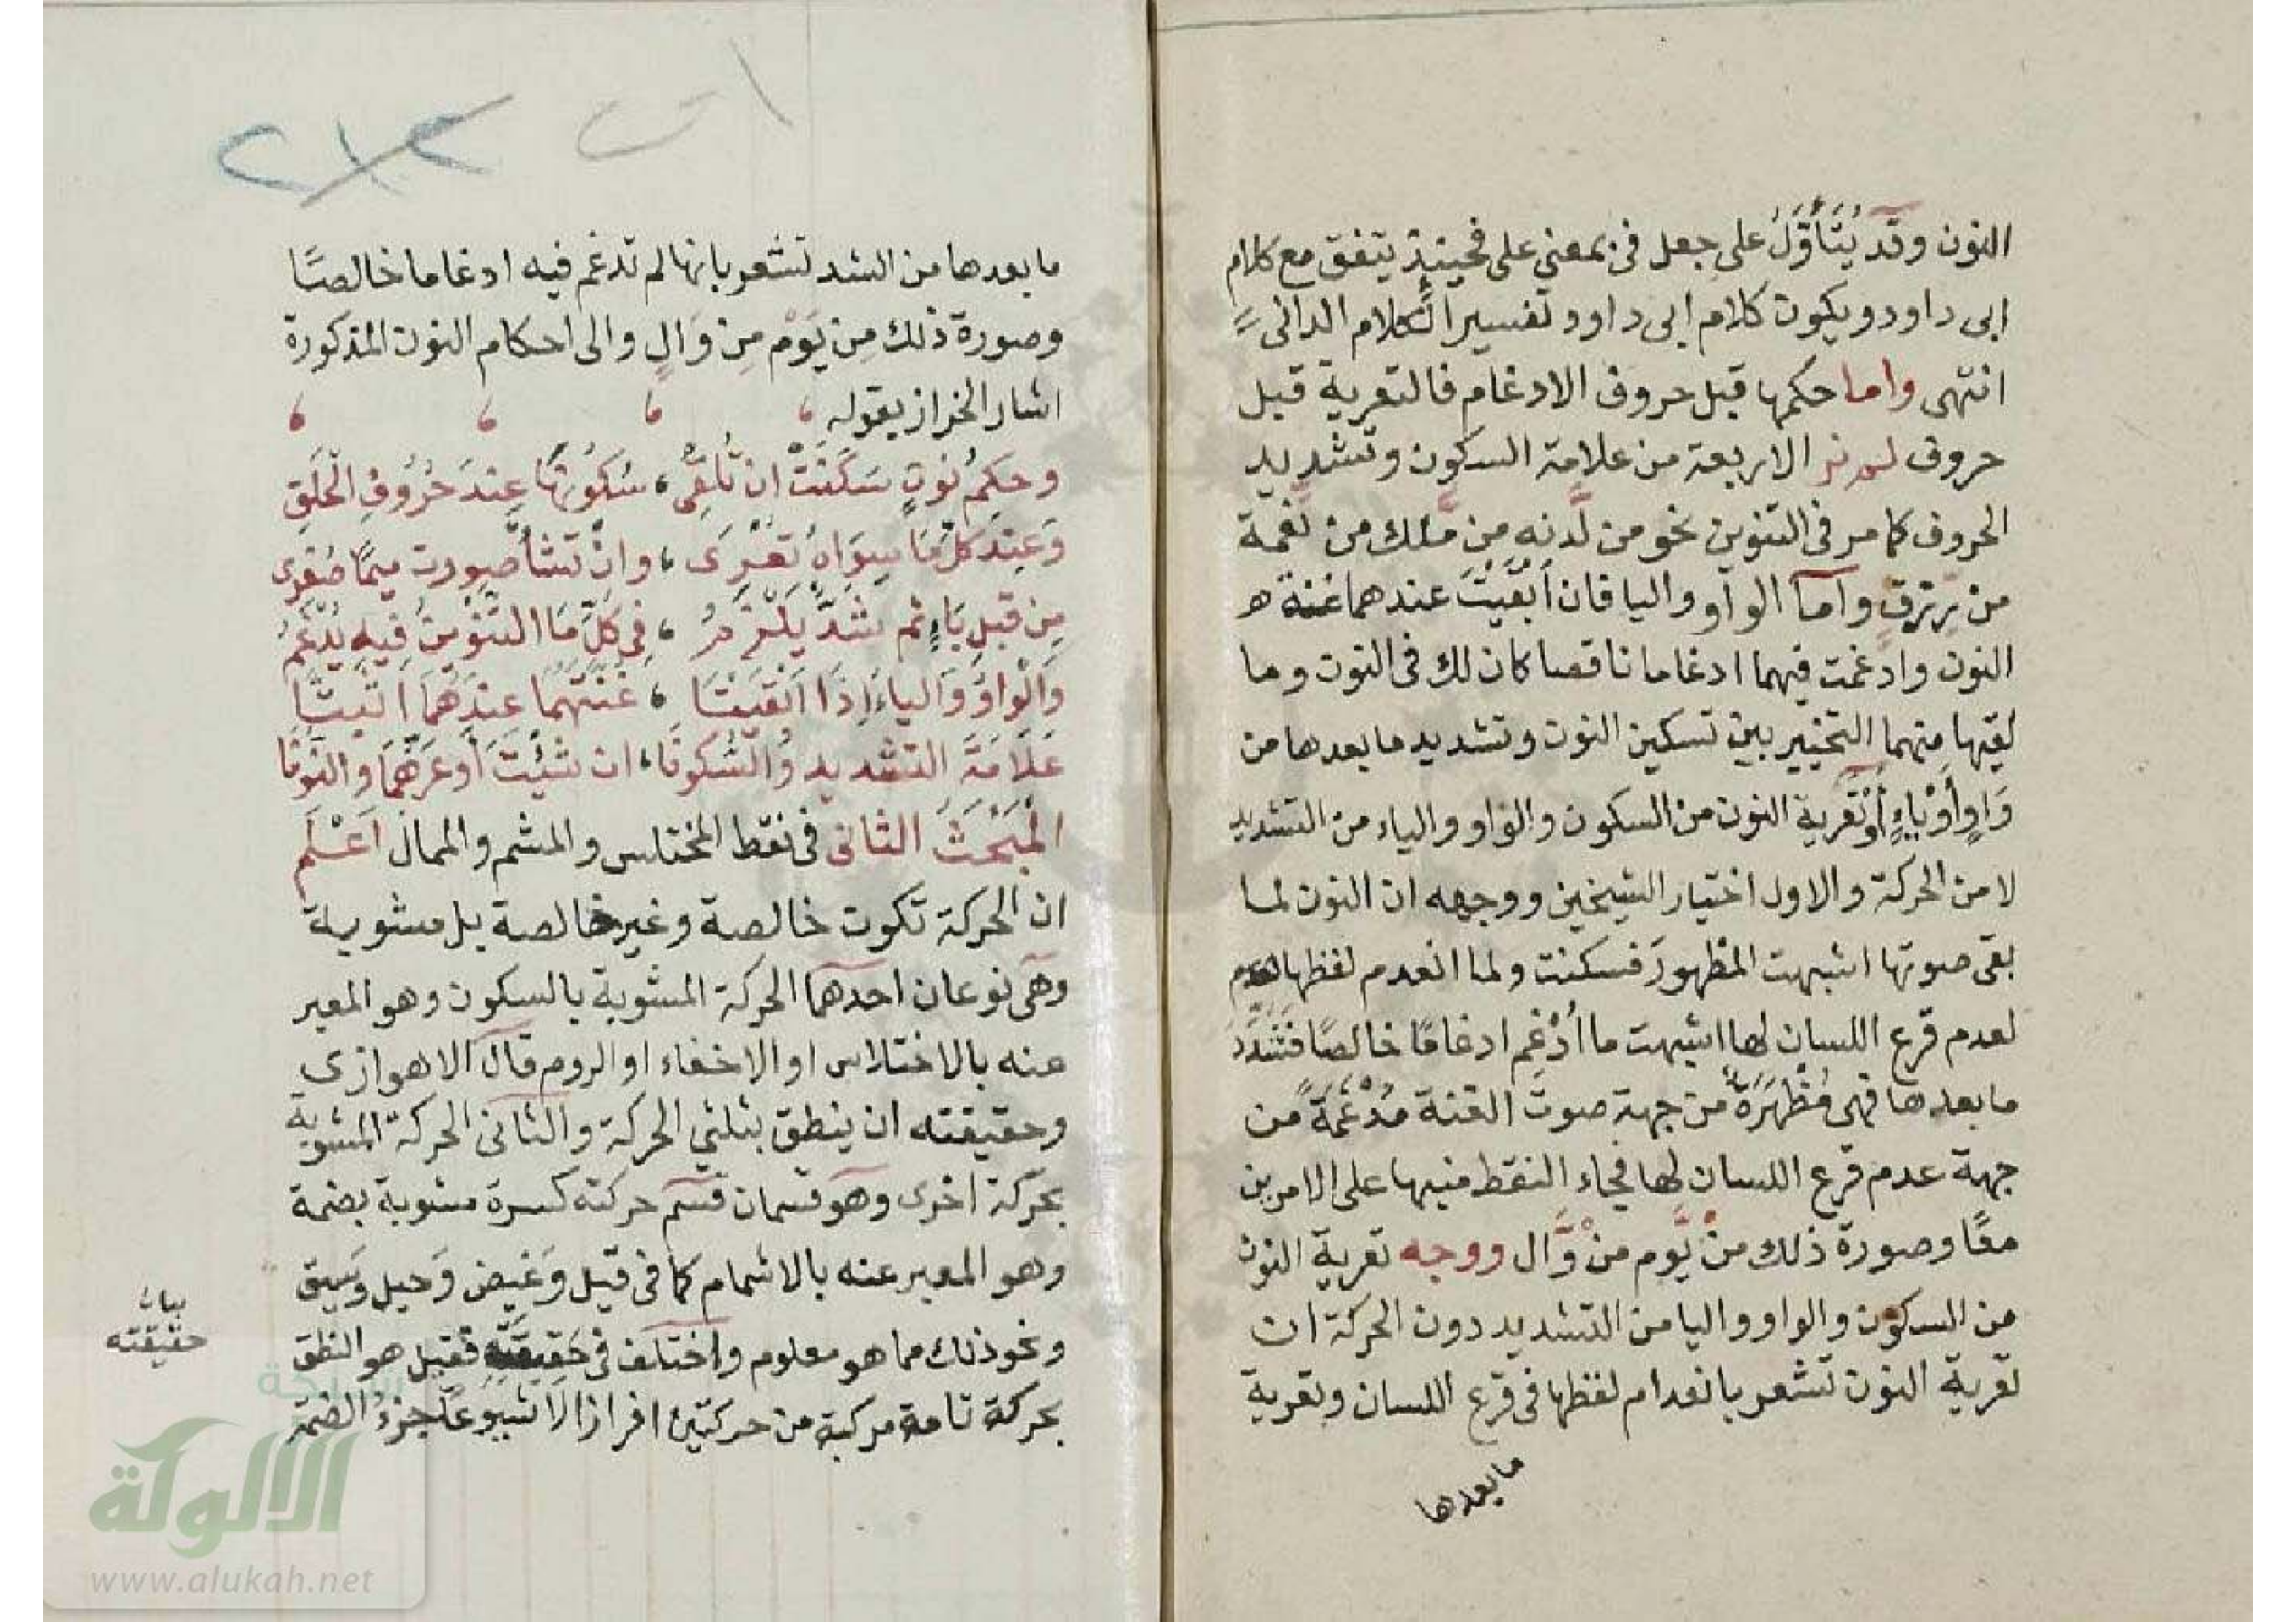 النون وقد يُتَأَوَّلُ على جعل فى بمعنى على فحينئذٍ يتفق مع كلام
ابى داود ويكون كلام ابى داود تفسيرا لكلام الدانى
انتهى واما حكمها قبل حروف الادغام فالتعرية قبل
حروف لم نر الاربعة من علامة السكون وتشديد
الحروف كما مر فى التنوين نحو من لَّدنه من مَّلك من نّعمة
من رّزق واما الواو واليا فان أَبْقَيْتَ عندهما غنة
النون وادغمت فيهما ادغاما ناقصا كان لك فى النون وما
لقيها منهما التخيير بين تسكين النون وتشديد ما بعدها من
وَاوٍ أَوْ يَاءٍ أَوْ تَعْرِية النون من السكون والواو والياء من التشديد
لا من الحركة والاول اختيار الشيخين ووجهه ان النون لما
بقى صوتها اشبهت المظهورَ فسكنت ولما انعدم لفظها
لعدم قرع اللسان لها اشبهت ما أُدْغِم ادغامًا خالصًا فَشُدِّدَ
ما بعدها فهى مُظْهَرَةٌ من جهة صوت الغنة مُدْغَمَةٌ من
جهة عدم قرع اللسان لها فجاء النقط منبها على الامرين
معًا وصورة ذلك منْ يَّوم منْ وَّال ووجه تعرية النون
من السكون والواو واليا من التشديد دون الحركة ان
تعرية النون تشعر بانعدام لفظها فى قرع اللسان وتعرية
ما بعدها
ما بعدها من الشد تشعر بانها لم تدغم فيه ادغاما خالصًا
وصورة ذلك مِن يَوْم مِن وَالٍ والى احكام النون المذكورة
اشار الخراز بقوله
وحكمُ نُونٍ سَكَنَتْ ان تُلْقِىَ ، سُكُونَهَا عِندَ حُرُوفِ الْحَلْقِ
وَعِندَ كلِّ مَا سِوَاهُ تعْرِى ، وانْ تَشَأ صورت ميمًا صُغرى
مِن قبلِ بَاءٍ ثم شَدٌّ يَلْزَمُ ، فِى كلِّ مَا التنْوِينُ فِيهِ يُدْغَمُ
وَالْوَاوُ وَالياءُ إِذَا أَبْقَيْتَا ، غُنَّتَهُمَا عِندَهُمَا أثبتَّا
عَلَامَةَ التشديدِ وَالسُّكونَا ، ان شِئْتَ أَوْ عَرِّهمَا والنونَا
الْمَبْحَثُ الثانى فى نقط المختلس والمشم والممال اَعْلَم
ان الحركة تكون خالصة وغير خالصة بل مشوبة
وهى نوعان احدهما الحركة المشوبة بالسكون وهو المعبر
عنه بالاختلاس او الاخفاء او الروم قال الاهوازى
وحقيقته ان ينطق بثلثي الحركة والثانى الحركة المشوبة
بحركة اخرى وهو قسمان قسم حركته كسرة مشوبة بضمة
وهو المعبر عنه بالاشمام كما فى قِيلَ وَغِيض وَحيل وَسِيق
ونحو ذلك مما هو معلوم واختلف فى حَقِيقَتِهِ فقيل هو النطق
بحركة تامة مركبة من حركتين افرازا لا شيوعًا جزءُ الضمة
بيان
حقيقته
الألوكة
www.alukah.net